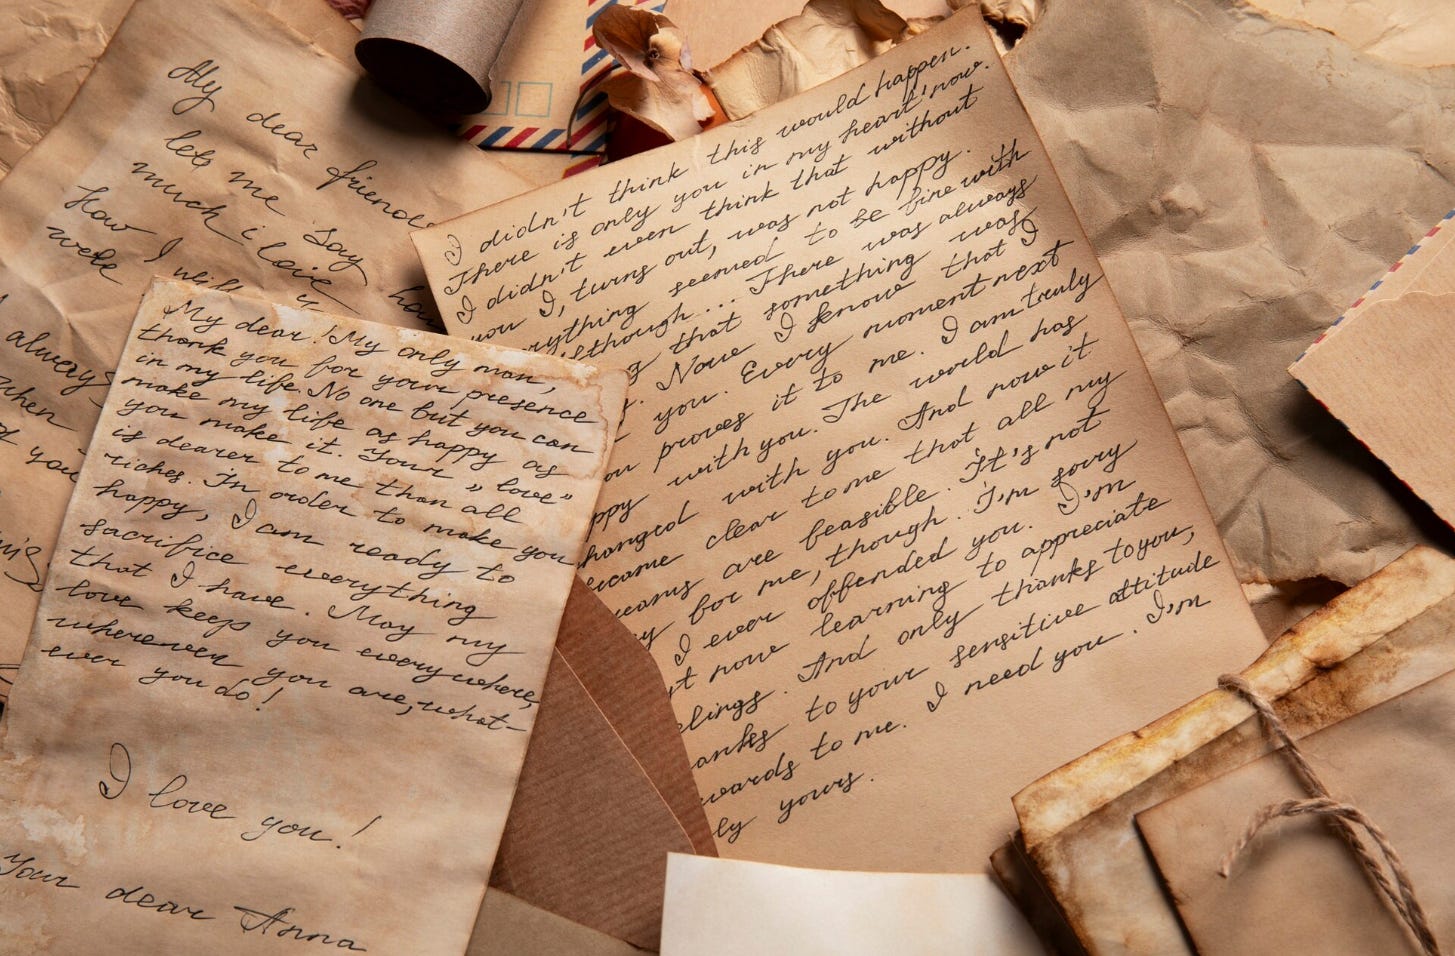 My dear friend
let me say
much i love
how I will
were
always
when
you
My dear! My only man,
thank you for your presence
in my life. No one but you can
make my life as happy as
you make it. Your „love"
is dearer to me than all
riches. In order to make you
happy, I am ready to
sacrifice everything
that I have. May my
love keep you everywhere,
wherever you are, what-
ever you do!
I love you!
Your dear Anna
I didn't think this would happen.
There is only you in my heart now.
I didn't even think that without
you I, turns out, was not happy.
rything seemed to be fine with
although... There was always
g that something was
. Now I know that I
you. Every moment next
ou proves it to me. I am truly
ppy with you. The world has
hanged with you. And now it
ecame clear to me that all my
reams are feasible. It's not
y for me, though. I'm sorry
I ever offended you. I'm
t now learning to appreciate
elings. And only thanks to you,
anks to your sensitive attitude
wards to me. I need you. I'm
ly yours.